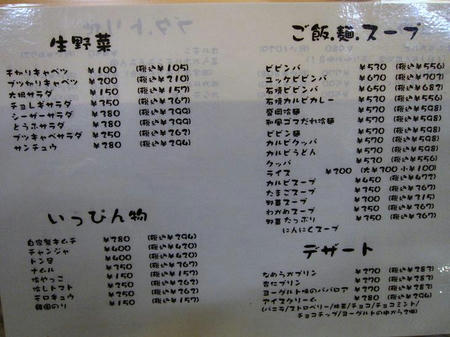 生野菜
キャベツ ¥100 (税込¥105)
ブツ切りキャベツ ¥200 (税込¥210)
大根サラダ ¥150 (税込¥157)
チョレギサラダ ¥350 (税込¥367)
シーザーサラダ ¥380 (税込¥399)
とうふサラダ ¥380 (税込¥399)
ブツキャベサラダ ¥250 (税込¥262)
サンチュウ ¥280 (税込¥294)
いっぴん物
自家製キムチ ¥280 (税込¥294)
チャンジャ ¥400 (税込¥420)
トン足 ¥400 (税込¥420)
ナムル ¥350 (税込¥367)
冷やっこ ¥150 (税込¥157)
冷しトマト ¥250 (税込¥262)
モロキュウ ¥250 (税込¥262)
韓国のり ¥150 (税込¥157)
ご飯.麺.スープ
ビビンバ ¥530 (税込¥556)
ユッケビビンバ ¥670 (税込¥703)
石焼ビビンバ ¥650 (税込¥682)
石焼カルビカレー ¥570 (税込¥598)
盛岡冷麺 ¥570 (税込¥598)
和風ゴマだれ冷麺 ¥570 (税込¥598)
ビビン麺 ¥570 (税込¥598)
カルビクッパ ¥570 (税込¥598)
カルビうどん ¥570 (税込¥598)
クッパ ¥530 (税込¥556)
ライス ¥200 (大¥300 小¥100)
カルビスープ ¥450 (税込¥472)
たまごスープ ¥350 (税込¥367)
野菜スープ ¥300
わかめスープ ¥350 (税込¥367)
野菜たっぷり ¥350 (税込¥367)
にんにくスープ
デザート
なめらかプリン ¥270 (税込¥283)
杏仁プリン ¥270 (税込¥283)
ヨーグルト味のババロア ¥270 (税込¥283)
アイスクリーム ¥280 (税込¥294)
(バニラ/ストロベリー/抹茶/チョコ/チョコミント/
チョコチップ/ヨーグルトの中から2個)